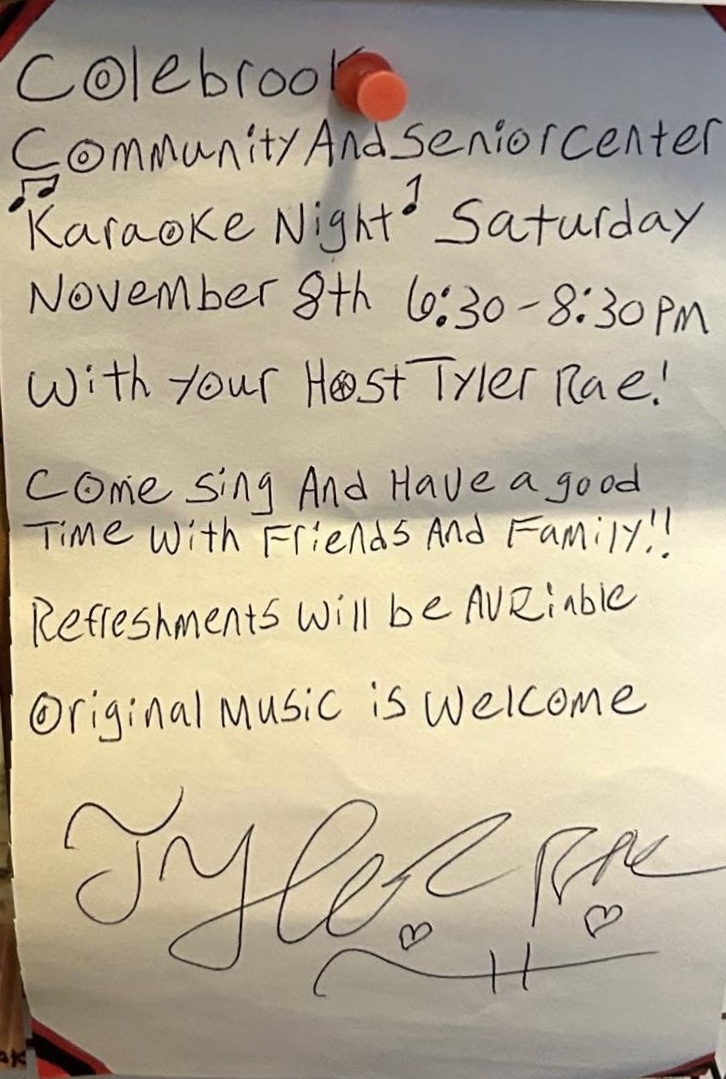 Colebrook
Community And Senior center
Karaoke Night Saturday
November 8th 6:30-8:30 PM
With your Host Tyler Rae!
Come sing And Have a good
Time With Friends And Family!!
Refreshments will be AVRiable
Original Music is Welcome
Tyler Rae